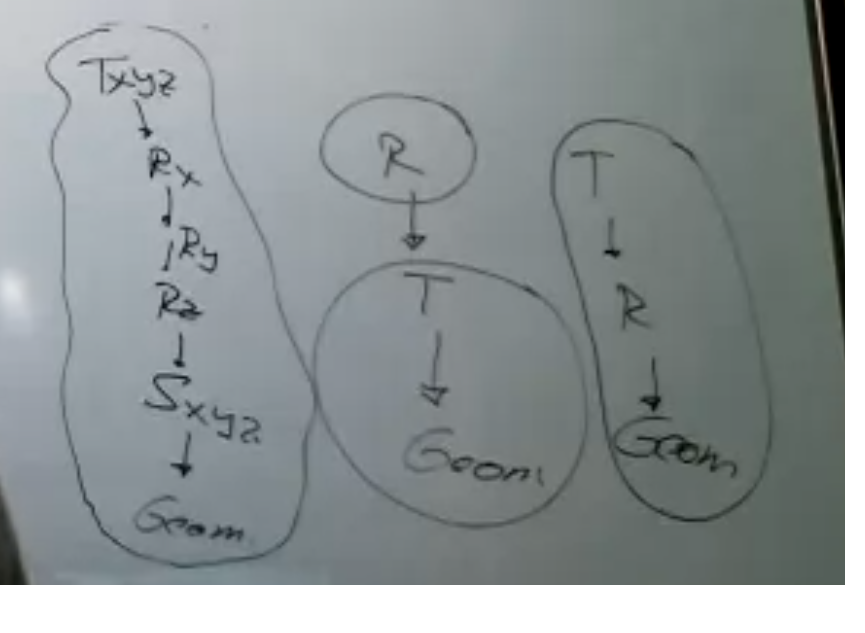 Txyz
Rx
Ry
Rz
Sxyz
Geom.
R
T
Geom.
T
R
Geom